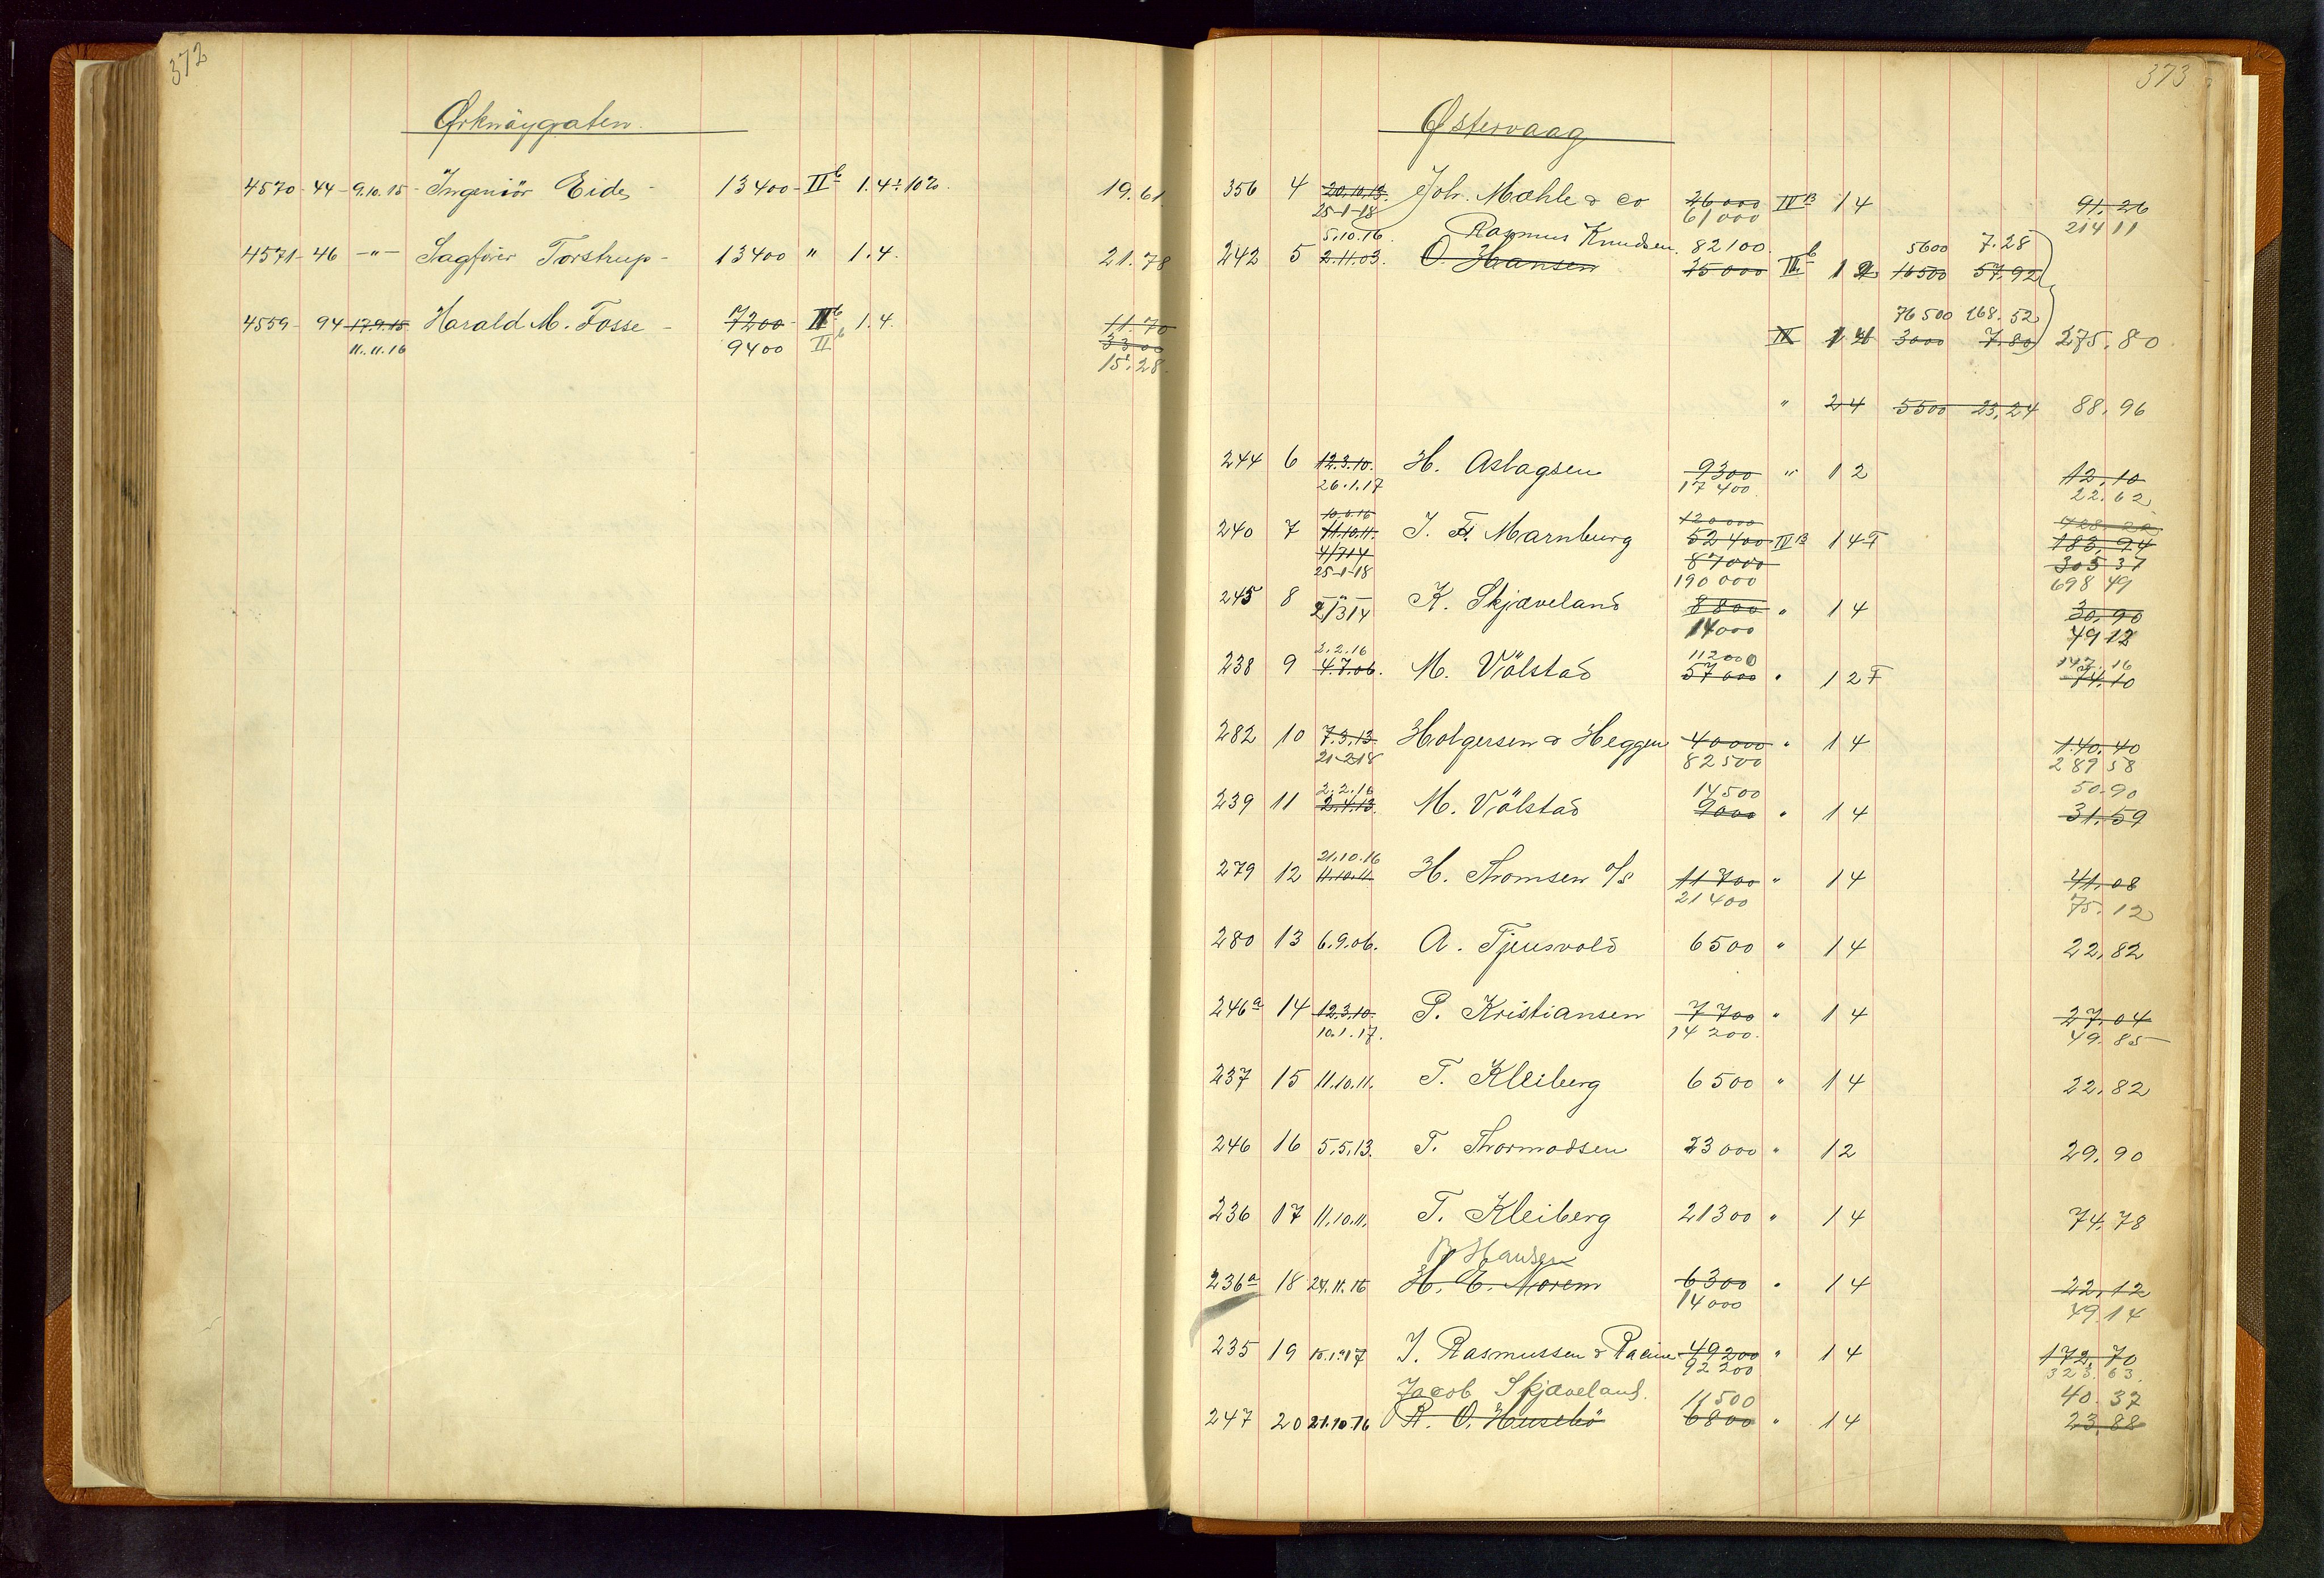 372
Ørknöygaten.
4570 - 44 - 9.10.15 - Ingeniör Eide - 13400 - IIb 1.4 ÷ 10%. 19.61
4571 - 46 - " - Sagförer Torstrup - 13400 " 1.4. 21.78
4559 - 94 - 17.9.15 Harald M. Fosse - 7200 - IIb 1.4. 11.70
11.11.16 9400 IIb 33.00
15.28.
373
Østervaag
356 4 20.10.13. Joh. Mæhle & Co 26000 IVB 14 91.26
25-1-18 61000 214 11
5.10.16. Rasmus Knudsen. 82100. 5600 7.28
242 5 2.11.03. O. Hansen 35000 IIIb 12 16500 57.92
76500 268.52
IV 14 3000 7.80 275.80
" 24 5500 23.24 88.96
244 6 12.3.10. H. Aslagsen 9300 " 12 12.10
26.1.17 17400 22.62
10.6.16 120000 428.22
240 7 11.10.11. J. F. Marnburg 52400 IVB 14F 183.94
4/7 14 87000 305 37
25-1-18 190000 698 49
245 8 - " - K. Skjæveland 8800 " 14 30.90
2/3 14 14000 49 12
2.2.16 112000 147.16
238 9 4.7.06. M. Völstad 57000 " 12F 74.10
282 10 7.3.13. Holgersen & Heggen 40000 " 14 140.40
21-2-18 82500 289 58
2.2.16 14500 50.90
239 11 2.4.13. M. Völstad 9000 " 14 31.59
21.10.16
279 12 11.10.11 H. Thomsen A/S 11700 " 14 41.08
21400 75.12
280 13 6.9.06. A. Tjensvold 6500 " 14 22.82
246a 14 12.3.10. P. Kristiansen 7700 " 14 27.04
10.1.17. 14200. 49.85
237 15 11.10.11. T. Kleiberg 6500 " 14 22.82
246 16 5.5.13. T. Thormodsen 23000 " 12 29.90
236 17 11.10.11. T. Kleiberg 21300 " 14 74.78
Hansen
236a 18 24.11.16 H. E. Norem 6300 " 14 22.12
14000 49.14
235 19 15.1.17 J. Rasmussen & Racine 49200 " 14 172.70
92200 323.63.
Jacob Skjæveland. 11500 40.37
247 20 21.10.16 R. O. Husebö 6800 " 14 23.88